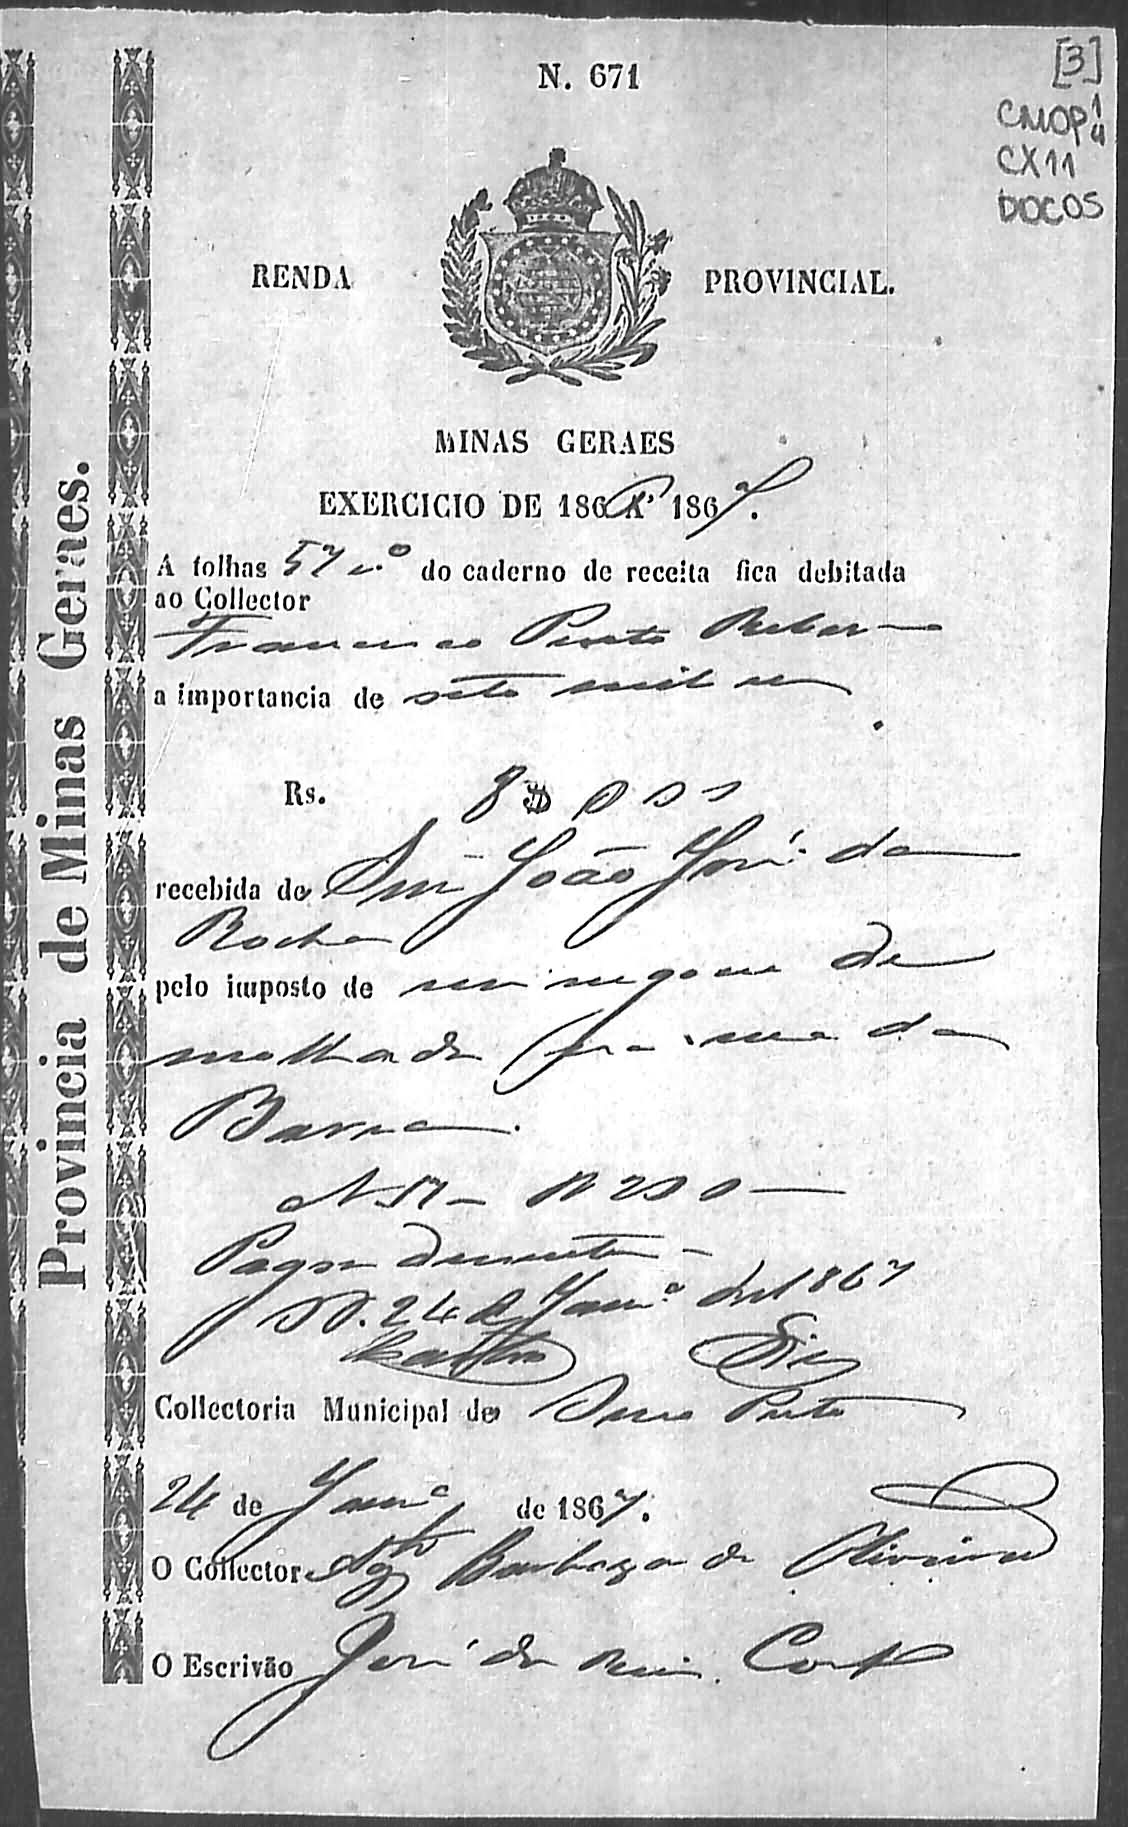 N. 671
[3]
CMOP 1/4
CX11
DOC05
RENDA PROVINCIAL.
MINAS GERAES
EXERCICIO DE 186 1867.
A folhas 57 v.º do caderno de receita fica debitada
ao Collector
Francisco Pinto
a importancia de sete mil
Rs. 8$000
recebida de Snr João José da
Rocha
pelo imposto de um negocio de
molhados na rua da
Barra
N 57
Pagou
24 de Janrº de 1867
Castro Dias
Collectoria Municipal de Ouro Preto
24 de Janrº de 1867.
O Collector Agtº Barboza de Oliveira
O Escrivão José da Cost
Provincia de Minas Geraes.